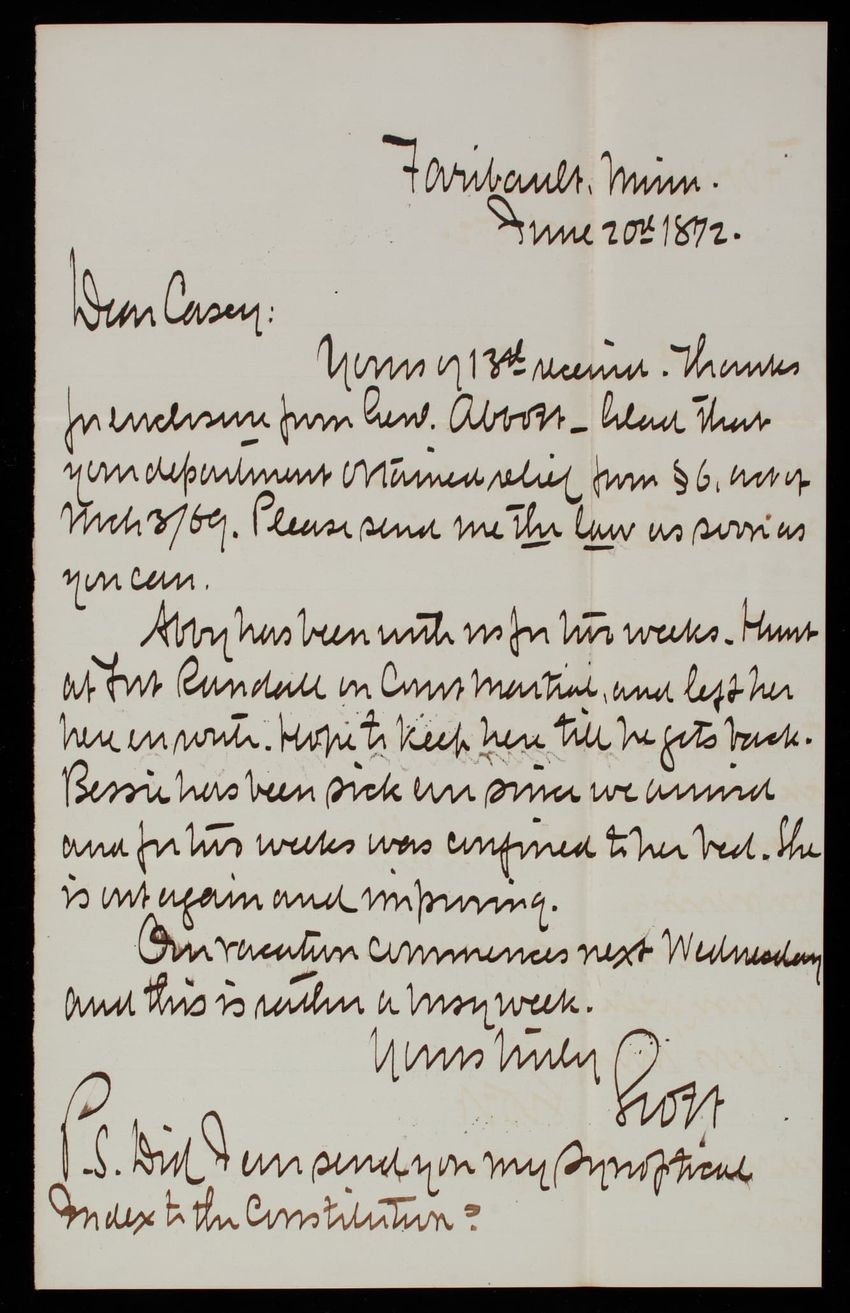 Faribault, Minn.
June 20th 1872.
Dear Casey:
Yours of 13th received. Thanks
for enclosure from Genl. Abbott_ Glad that
your department obtained relief from § 6, act of
Mch 3/69. Please send me the law as soon as
you can.
Abby has been with us for two weeks. Hunt
at Fort Randall on Court Martial, and left her
here en route. Hope to keep here till he gets back.
Bessie has been sick ever since we arrived
and for two weeks was confined to her bed. She
is out again and improving.
Our vacation commences next Wednesday
and this is rather a busy week.
Yours truly
Scott
P.S. Did I ever send you my Synoptical
Index to the Constitution?